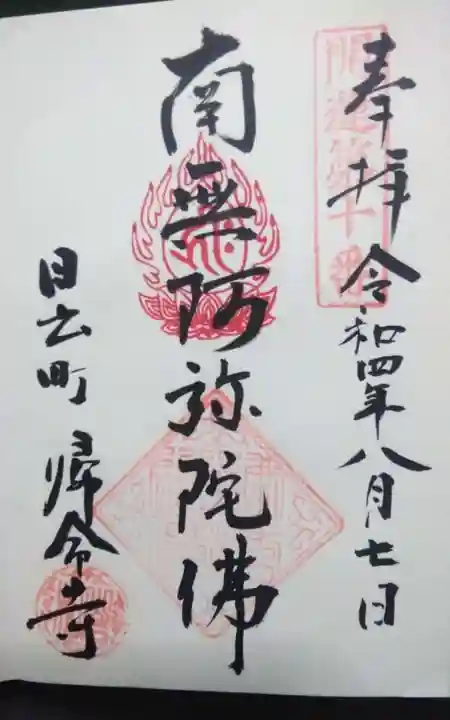 奉拝 令和四年八月七日
南無阿弥陀佛
日云町 帰命寺